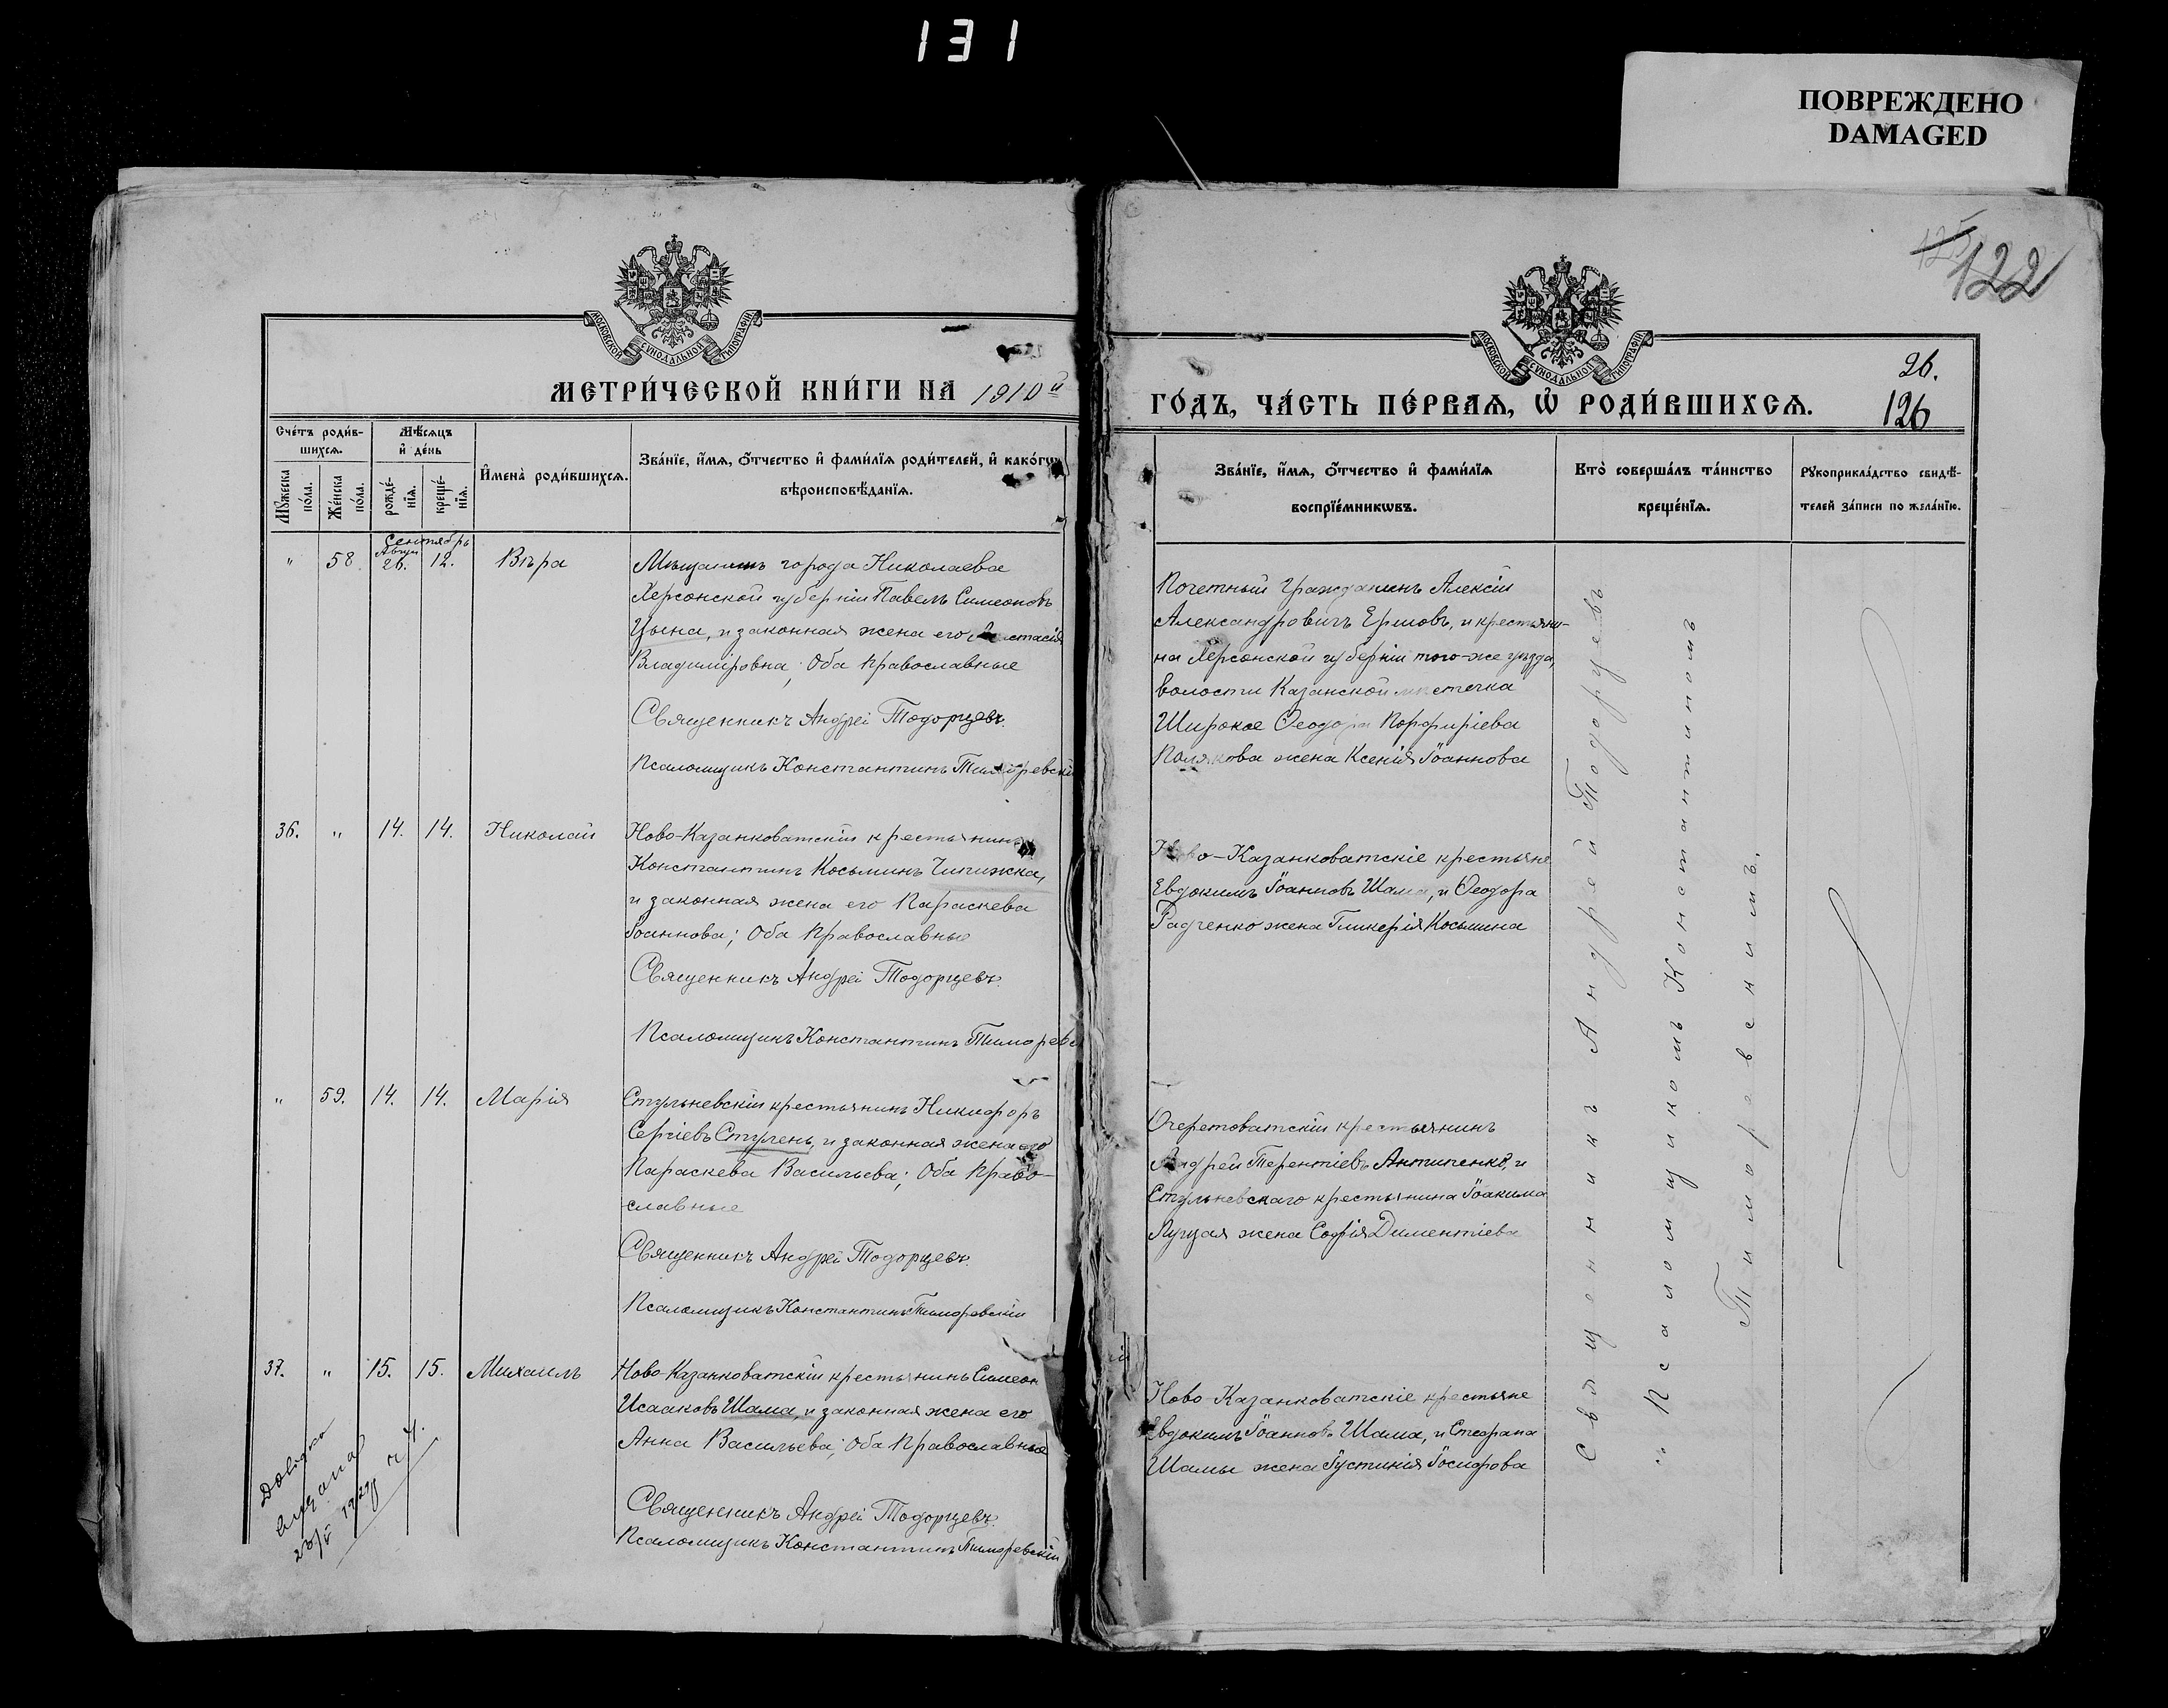 131
ПОВРЕЖДЕНО
DAMAGED
122
МОСКОВСКОЙ СУНОДАЛЬНОЙ ТИПОГРАФІИ
МОСКОВСКОЙ СУНОДАЛЬНОЙ ТИПОГРАФІИ
26.
126
МЕТРИ́ЧЕСКОЙ КНИ́ГИ НА 1910й
ГО́ДЪ, ЧА́СТЬ ПЕ́РВАѦ, Ѡ҆ РОДИ́ВШИХСѦ.
Сче́тъ роди́в-
шихсѧ.
Мѣ́сѧцъ
и҆ де́нь
Мꙋ́жеска
по́ла.
Же́нска
по́ла.
рожде́-
нїѧ.
креще́-
нїѧ.
И҆мена̀ роди́вшихсѧ.
Зва́нїе, и҆́мѧ, ѻ҆́тчество и҆ фами́лїѧ роди́телей, и҆ како́гѡ
вѣроисповѣ́данїѧ.
Зва́нїе, и҆́мѧ, ѻ҆́тчество и҆ фами́лїѧ
воспрїе́мникѡвъ.
Кто̀ соверша́лъ та́инство
креще́нїѧ.
Рꙋкоприкла́дство свидѣ́-
телей за́писи по жела́нїю.
Сентябрь
" 58 Август 26. 12. Вѣра
Мѣщанинъ города Николаева
Херсонской губерніи Павелъ Симеоновъ
Цына, и законная жена его Анастасія
Владиміровна; Оба Православные
Священникъ Андрей Тодорцевъ.
Псаломщикъ Константинъ Тиморевскій
Почетный гражданинъ Алексій
Александровичъ Ермовъ, и крестьяни-
на Херсонской губерніи того-же уѣзда,
волости Казанской мѣстечка
Широкое Ѳеодора Порфиріева
Полякова жена Ксенія Іоаннова
36. " 14. 14. Николай
Ново-Казанковатскій крестьянинъ
Константинъ Косьминъ Чипижка,
и законная жена его Параскева
Іоаннова; Оба Православные
Священникъ Андрей Тодорцевъ.
Псаломщикъ Константинъ Тиморевс
Ново-Казанковатскіе крестьяне
Евдокимъ Іоанновъ Шама, и Ѳеодора
Радченко жена Гликерія Косьмина
" 59. 14. 14. Марія
Стульневскій крестьянинъ Никифоръ
Сергіевъ Стулень, и законная жена его
Параскева Васильева; Оба Право-
славные
Священникъ Андрей Тодорцевъ.
Псаломщикъ Константинъ Тиморевскій
Очеретоватскій крестьянинъ
Андрей Терентіевъ Антипенко, и
Стульневскаго крестьянина Іоакима
Луцая жена Софія Диментіева
37. " 15. 15. Михаилъ
Ново-Казанковатскій крестьянинъ Симеон
Исааковъ Шама, и законная жена его
Анна Васильева; Оба Православные
Священникъ Андрей Тодорцевъ.
Псаломщикъ Константинъ Тиморевскій
Ново-Казанковатскіе крестьяне
Евдокимъ Іоанновъ Шама, и Стефана
Шамы жена Іустинія Іосифова
Священникъ Андрей Тодорцевъ
" Псаломщикомъ Константиномъ
Тиморевскимъ.